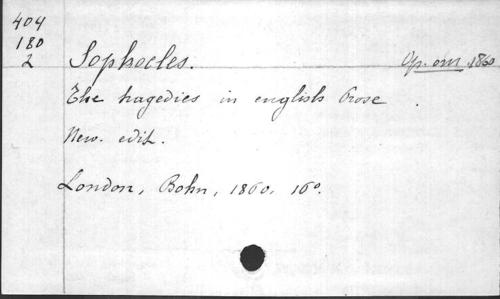 404
180
2
Sophocles. Op. om. 1860
The tragedies in english prose.
New. edit.
London, Bohn, 1860. 16°.